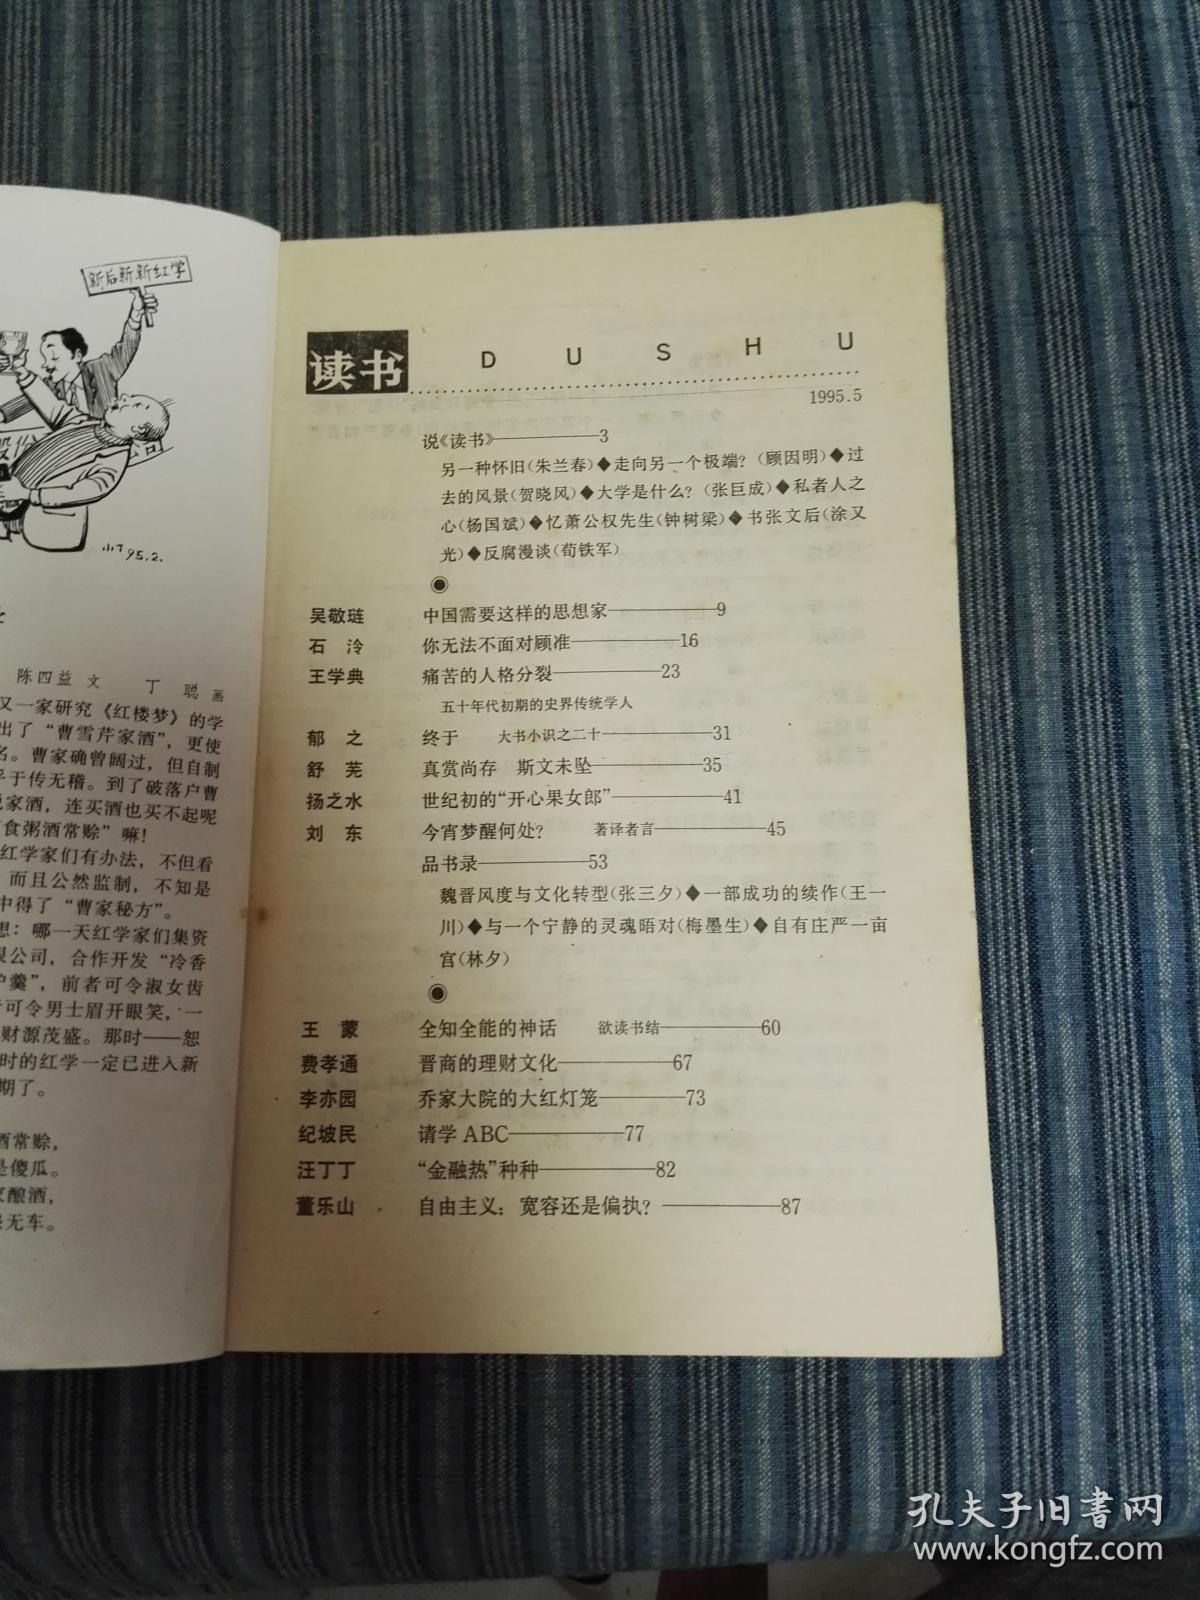 新后新新红学
小丁95.2.
陈四益 文 丁聪 画
又一家研究《红楼梦》的学
出了“曹雪芹家酒”，更使
名。曹家确曾阔过，但自制
乎于传无稽。到了破落户曹
说家酒，连买酒也买不起呢
食粥酒常赊”嘛！
红学家们有办法，不但看
而且公然监制，不知是
中得了“曹家秘方”。
想：哪一天红学家们集资
限公司，合作开发“冷香
护羹”，前者可令淑女齿
可令男士眉开眼笑，一
财源茂盛。那时——恕
时的红学一定已进入新
期了。
酒常赊，
是傻瓜。
家酿酒，
无车。
读书 DUSHU
1995.5
说《读书》——3
另一种怀旧(朱兰春)◆走向另一个极端？(顾因明)◆过
去的风景(贺晓风)◆大学是什么？(张巨成)◆私者人之
心(杨国斌)◆忆萧公权先生(钟树梁)◆书张文后(涂又
光)◆反腐漫谈(荀铁军)
吴敬琏 中国需要这样的思想家——9
石泠 你无法不面对顾准——16
王学典 痛苦的人格分裂——23
五十年代初期的史界传统学人
郁之 终于 大书小识之二十一——31
舒芜 真赏尚存 斯文未坠——35
扬之水 世纪初的“开心果女郎”——41
刘东 今宵梦醒何处？ 著译者言——45
品书录——53
魏晋风度与文化转型(张三夕)◆一部成功的续作(王一
川)◆与一个宁静的灵魂晤对(梅墨生)◆自有庄严一亩
宫(林夕)
王蒙 全知全能的神话 欲读书结——60
费孝通 晋商的理财文化——67
李亦园 乔家大院的大红灯笼——73
纪坡民 请学ABC——77
汪丁丁 “金融热”种种——82
董乐山 自由主义：宽容还是偏执？——87
孔夫子旧书网
www.kongfz.com